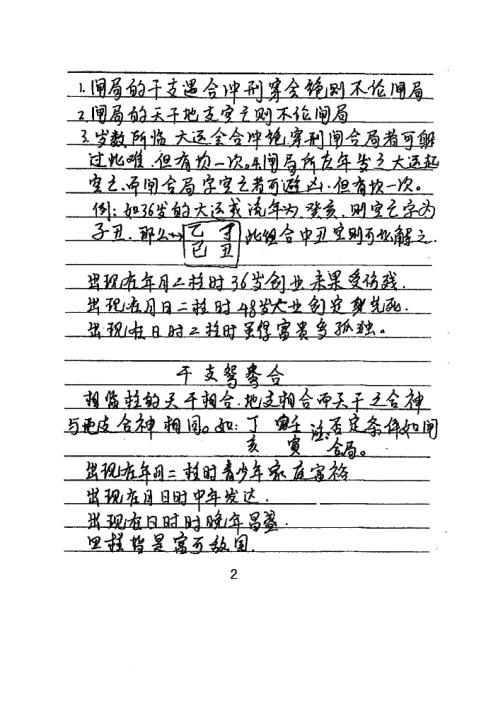 1.闸局的干支遇合冲刑穿全绝则不论闸局
2.闸局的天干地支空亡则不论闸局
3.岁数所临大运会合冲绝,穿刑闸合局者可解
过此难,但有坎一次。4.闸局所在年岁之大运起
空亡,而闸合局字空亡者可避凶,但有坎一次。
例:如36岁的大运或流年为癸亥,则空亡字为
子丑,那么 乙丁 此组合中丑空则可此解之.
巳丑
出现在年月二柱时36岁创业未果受伤残.
出现在月日二柱时48岁大业创定身先死.
出现在日时二柱时虽得富贵多孤独。
干支鸳鸯合
相临柱的天干相合,地支相合而天干之合神
与地支合神相同。如:丁 壬 注:否定条件如闸
亥 寅 合局。
出现在年月二柱时青少年家庭富裕
出现在月日时中年发达.
出现在日时时晚年昌盛.
四柱皆是富可敌国.
2